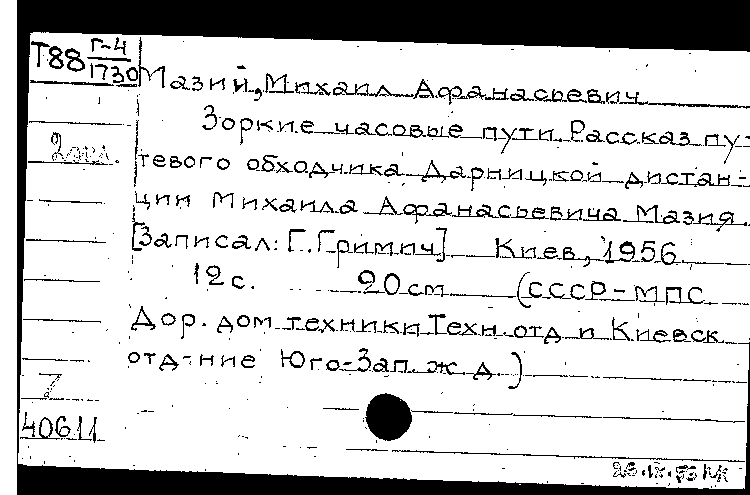 Т88 Г-4
1730
Мазий, Михаил Афанасьевич
Зоркие часовые пути. Рассказ пу-
тевого обходчика Дарницкой дистан-
ции Михаила Афанасьевича Мазия.
[Записал: Г. Гримич] Киев, 1956.
12 с. 20 см (СССР-МПС
Дор. дом техники Техн. отд и Киевск
отд-ние Юго-Зап. ж. д.)
40611